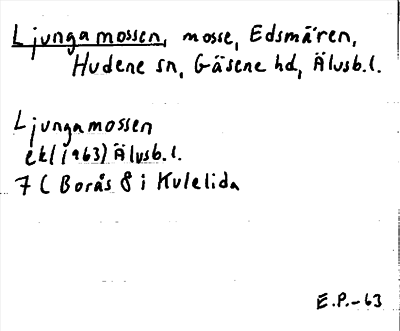 Ljungamossen, mosse, Edsmären,
Hudene sn, Gäsene hd, Älvsb.l.
Ljungamossen
ek(1963) Älvsb.l.
7 C Borås 8 i Kulelida
E.P.-63